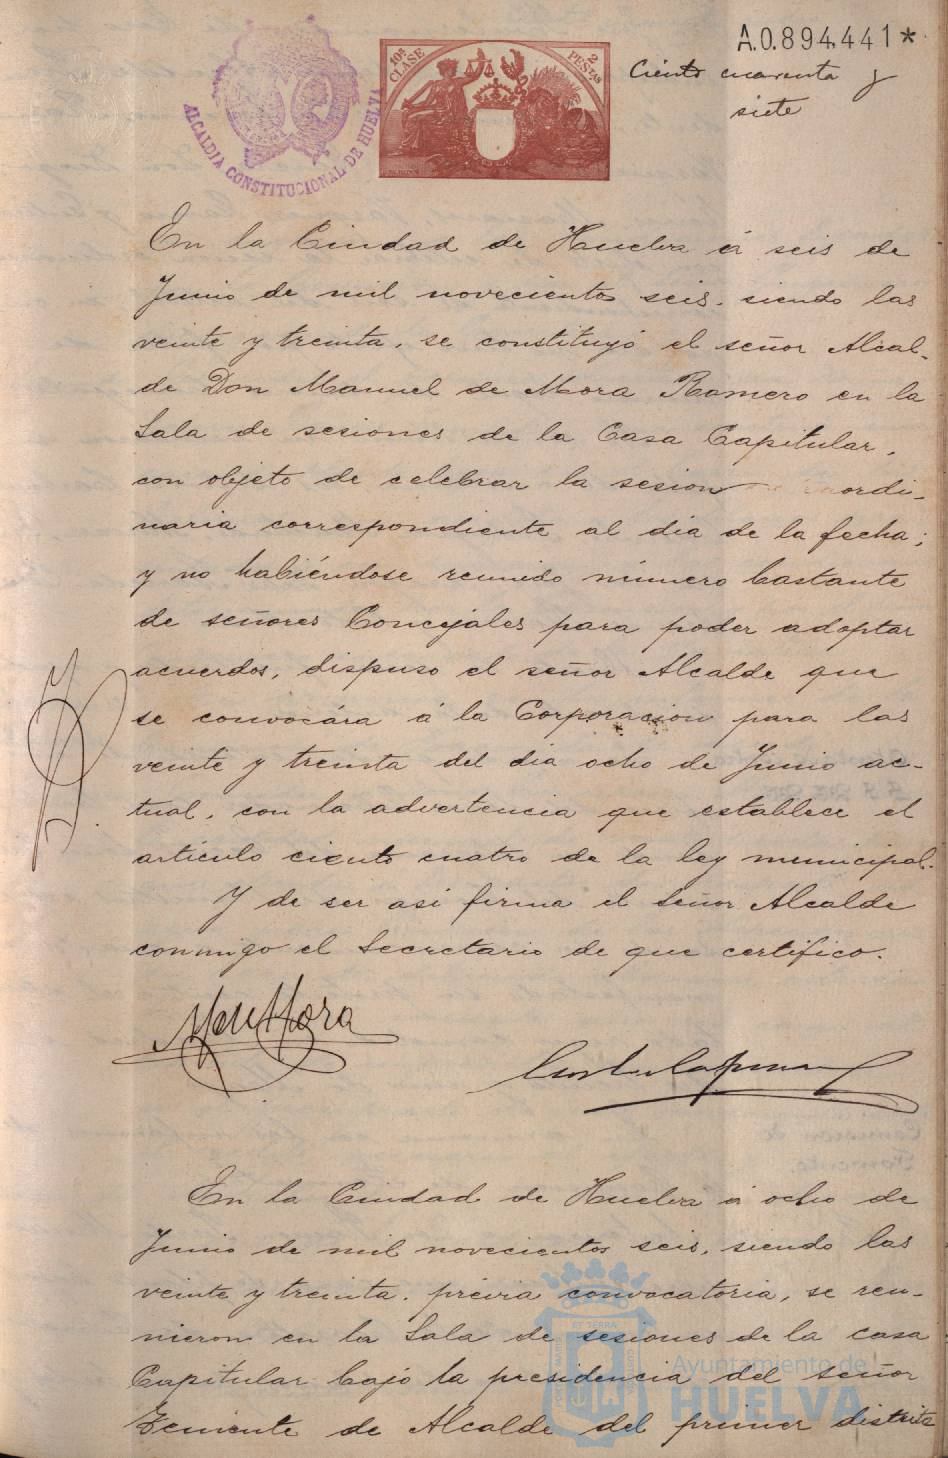 A.0.894.441*
Ciento cuarenta y
siete
10ª CLASE
2 PESETAS
ALCALDIA CONSTITUCIONAL DE HUELVA
En la Ciudad de Huelva á seis de
Junio de mil novecientos seis, siendo las
veinte y treinta, se constituyó el señor Alcal-
de Don Manuel de Mora Romero en la
Sala de sesiones de la Casa Capitular,
con objeto de celebrar la sesion ordi-
naria correspondiente al dia de la fecha;
y no habiéndose reunido número bastante
de señores Concejales para poder adoptar
acuerdos, dispuso el señor Alcalde que
se convocára á la Corporacion para las
veinte y treinta del dia ocho de Junio ac-
tual, con la advertencia que establece el
artículo ciento cuatro de la ley municipal.
Y de ser asi firma el señor Alcalde
conmigo el Secretario de que certifico.
Man Mora
En la Ciudad de Huelva á ocho de
Junio de mil novecientos seis, siendo las
veinte y treinta, prévia convocatoria, se reu-
nieron en la Sala de sesiones de la casa
Capitular bajo la presidencia del señor
Teniente de Alcalde del primer distrito
Ayuntamiento de
HUELVA